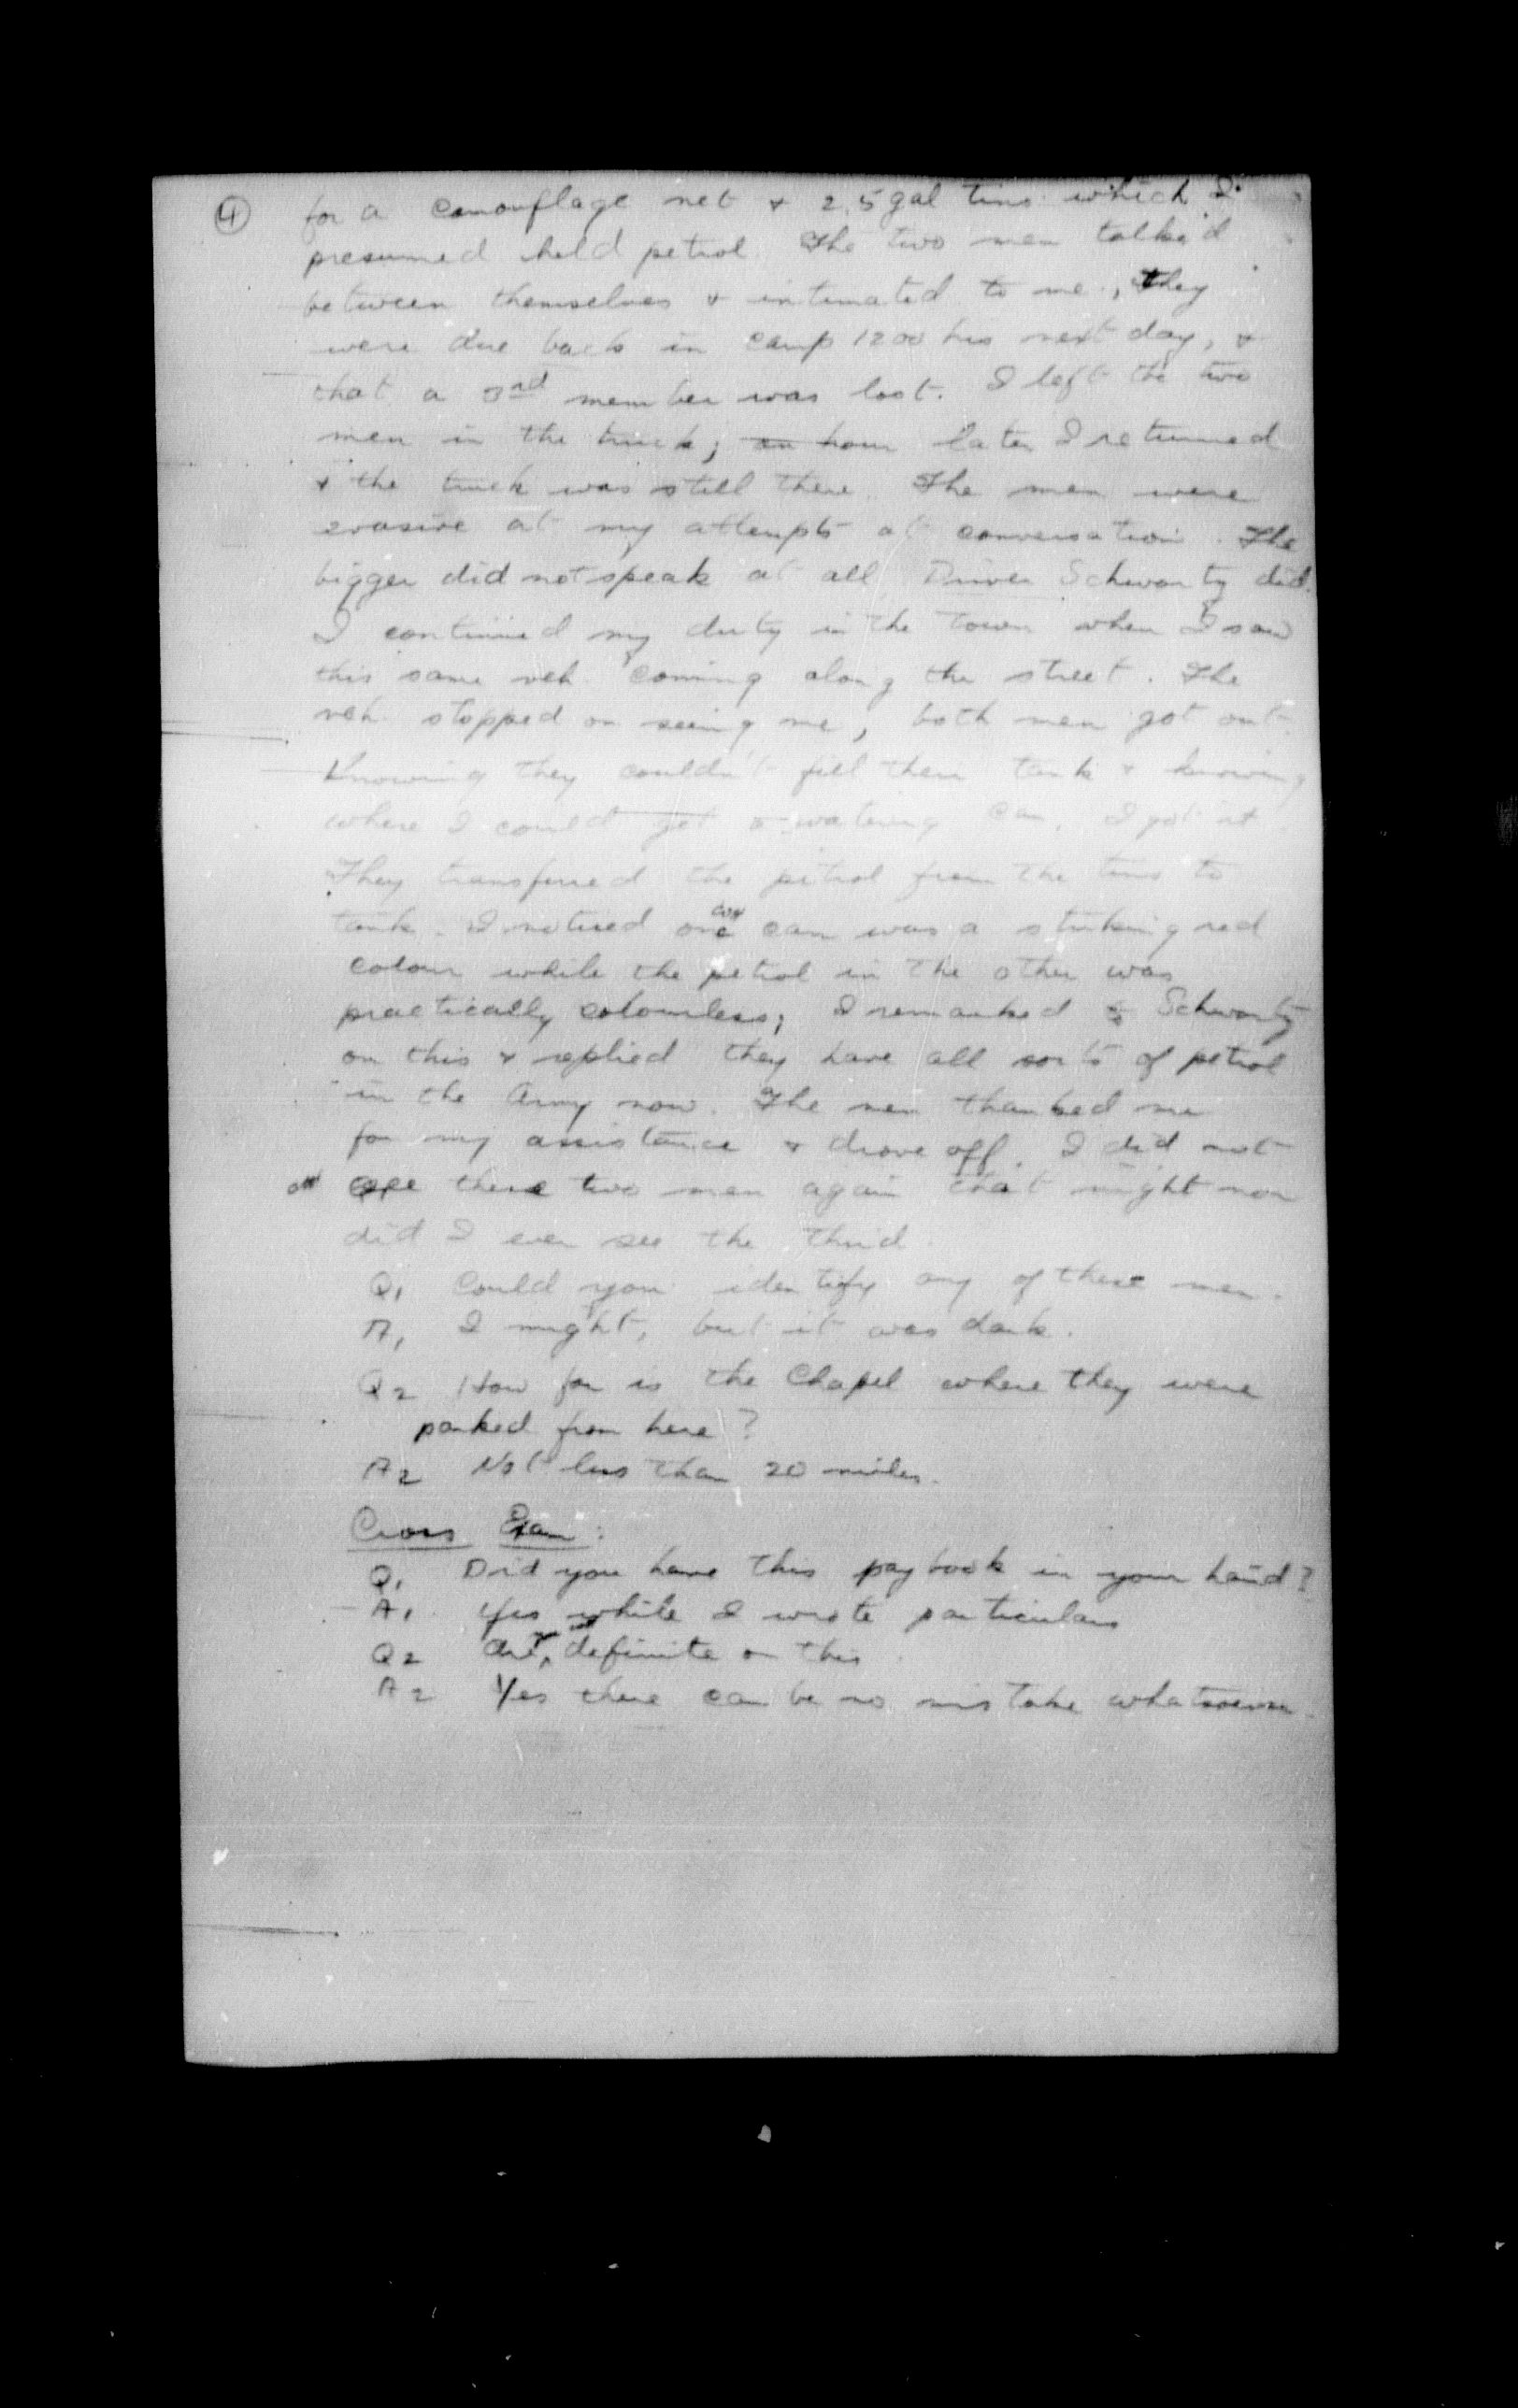 ④ for a camouflage net & 2, 5 gal tins which I
presumed held petrol. The two men talked
between themselves & intimated to me, they
were due back in camp 1200 hrs next day, &
that a 3rd member was lost. I left the two
men in the truck; an hour later I returned
& the truck was still there. The men were
evasive at my attempts at conversation. The
bigger did not speak at all Driver Schwartz did.
I continued my duty in the town when I saw
this same veh. coming along the street. The
veh. stopped on seeing me, both men got out.
Knowing they couldn't fill their tank & knowing
where I could get a watering can, I got it.
They transferred the petrol from the tins to
tank. I noticed one can was a striking red
colour while the petrol in the other was
practically colourless; I remarked to Schwartz
on this & replied they have all sorts of petrol
in the Army now. The men thanked me
for my assistance & drove off. I did not
see these two men again that night nor
did I ever see the third.
Q1 Could you identify any of these men.
A1 I might, but it was dark.
Q2 How far is the Chapel where they were
parked from here?
A2 Not less than 20 miles.
Cross Exam:
Q1 Did you have this paybook in your hand?
A1 Yes while I wrote particulars
Q2 Are you definite on this
A2 Yes there can be no mistake whatsoever.